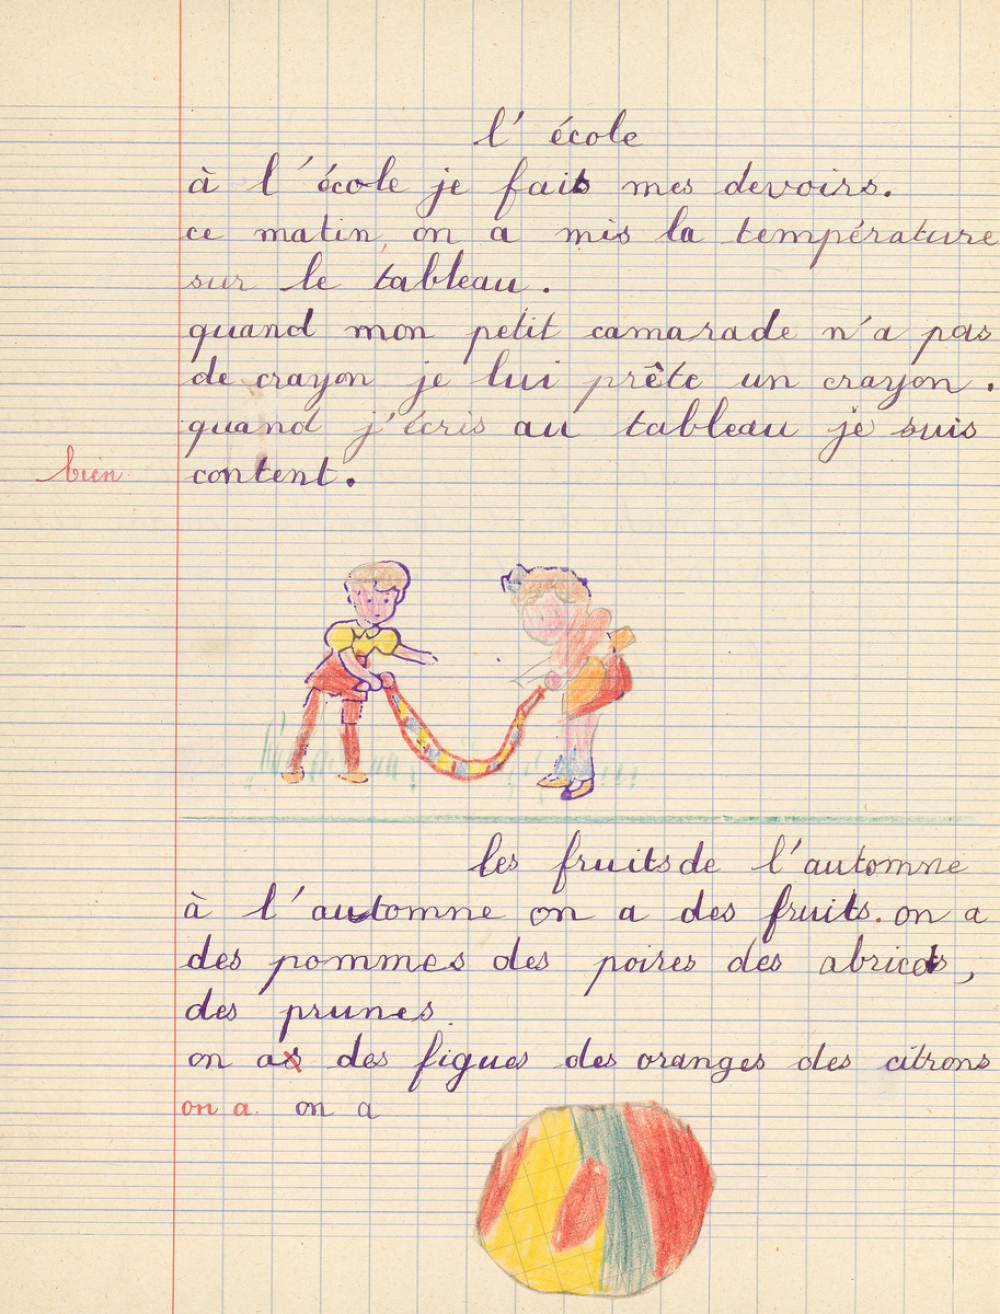 l'école
à l'école je fais mes devoirs.
ce matin, on a mis la température
sur le tableau.
quand mon petit camarade n'a pas
de crayon je lui prête un crayon.
quand j'écris au tableau je suis
bien content.
les fruits de l'automne
à l'automne on a des fruits. on a
des pommes des poires des abricots,
des prunes.
on as des figues des oranges des citrons
on a. on a